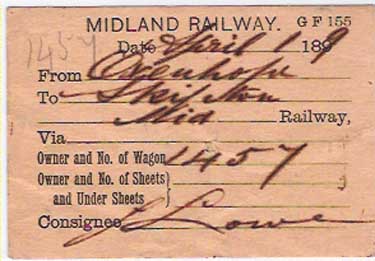 MIDLAND RAILWAY. G F 155
1457
Date April 1 189 9
From Oxenhope
To Skipton
Mid Railway,
Via
Owner and No. of Wagon 1457
Owner and No. of Sheets
and Under Sheets
Consignee J Lowe